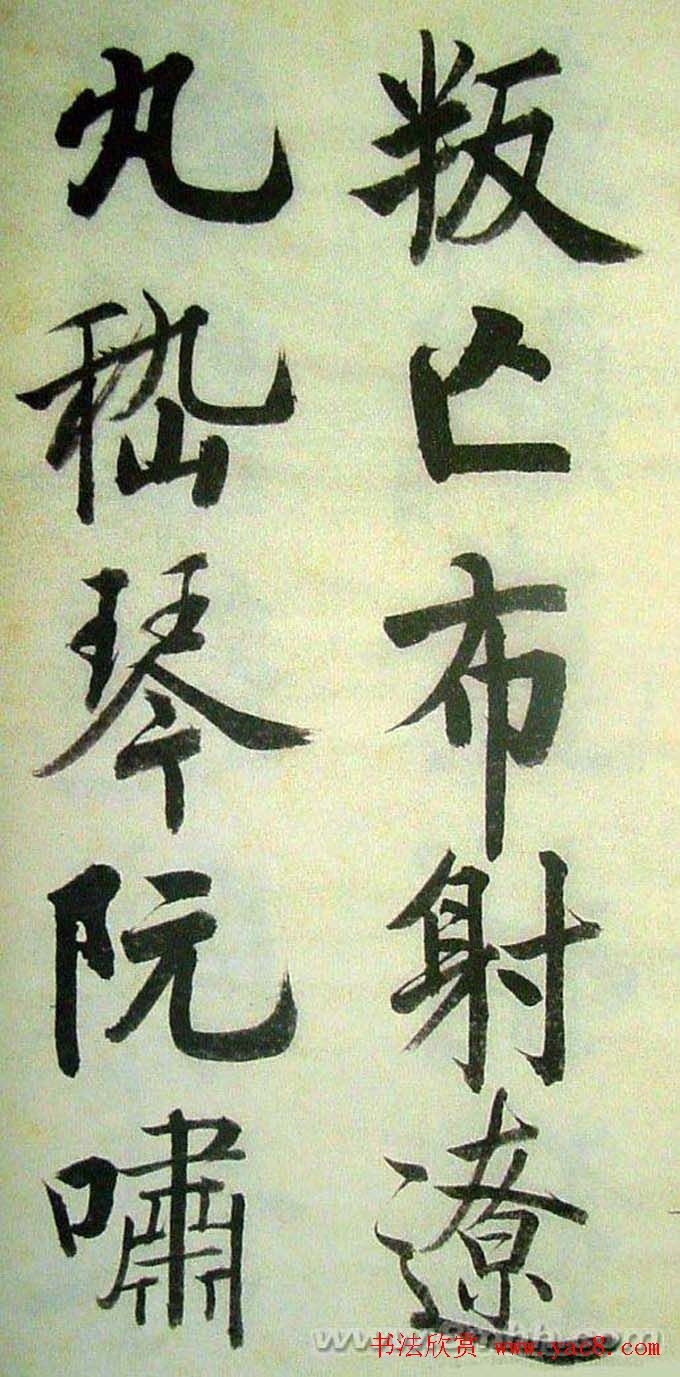 叛亡布射遼
丸嵇琴阮嘯
书法欣赏 www.yac8.com